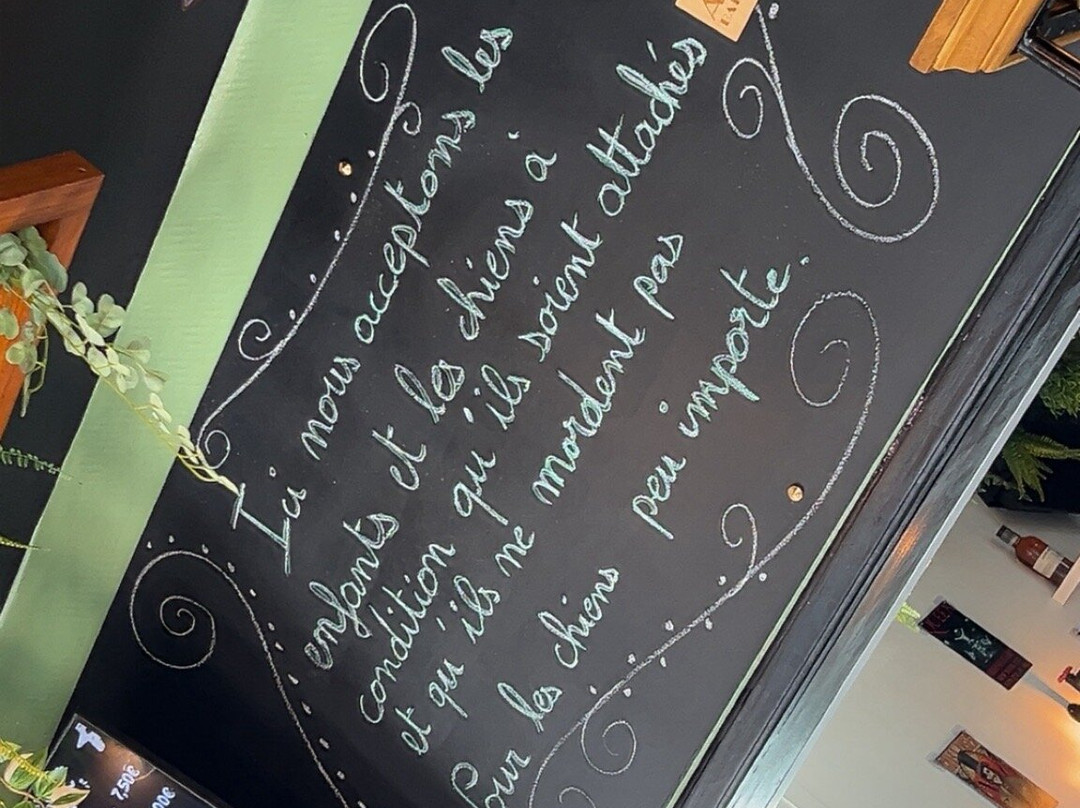 Ici nous acceptons les
enfants et les chiens à
condition qu'ils soient attachés
et qu'ils ne mordent pas
Pour les chiens peu importe.
7,50€